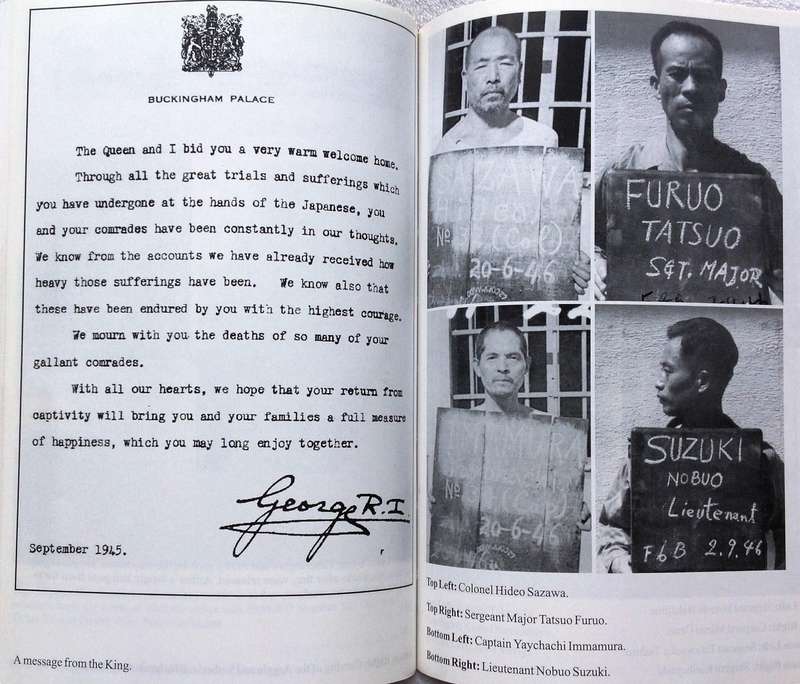 BUCKINGHAM PALACE
The Queen and I bid you a very warm welcome home.
Through all the great trials and sufferings which
you have undergone at the hands of the Japanese, you
and your comrades have been constantly in our thoughts.
We know from the accounts we have already received how
heavy those sufferings have been. We know also that
these have been endured by you with the highest courage.
We mourn with you the deaths of so many of your
gallant comrades.
With all our hearts, we hope that your return from
captivity will bring you and your families a full measure
of happiness, which you may long enjoy together.
George R.I.
September 1945.
A message from the King.
No
20-6-46
FURUO
TATSUO
SGT. MAJOR
No
20-6-46
SUZUKI
NOBUO
Lieutenant
F6B 2.9.46
Top Left: Colonel Hideo Sazawa.
Top Right: Sergeant Major Tatsuo Furuo.
Bottom Left: Captain Yaychachi Immamura.
Bottom Right: Lieutenant Nobuo Suzuki.